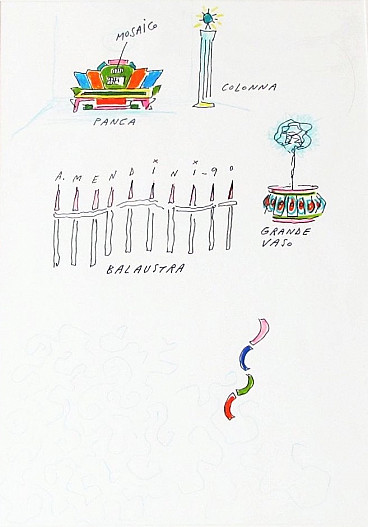 MOSAICO
COLONNA
PANCA
A. MENDINI-90
GRANDE
VASO
BALAUSTRA